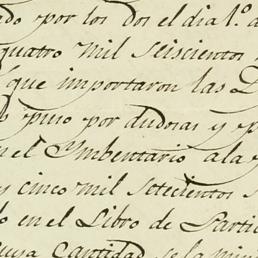 ado por los dos el dia 1.º a
quatro mil seiscientos
que importaron las D
puso por dudosas y p
n el Ymbentario a la
y cinco mil setecientos s
do en el Libro de Partic
cuya Cantidad se la